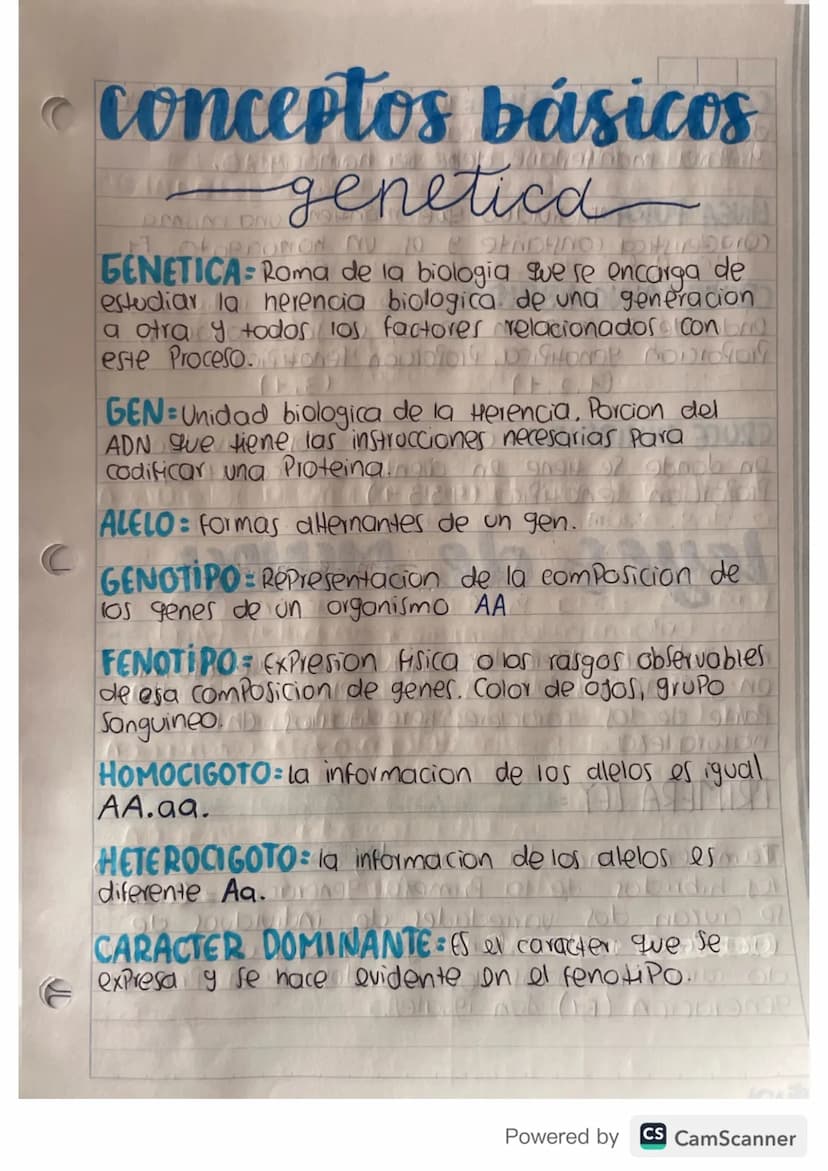 conceptos básicos
genetica
GENETICA= Roma de la biologia que se encarga de
estudiar la herencia biologica de una generacion
a otra y todos los factores relacionados con
este Proceso.
GEN= Unidad biologica de la Herencia. Porcion del
ADN que tiene las instrucciones necesarias Para
codificar una Proteina.
ALELO= formas alternantes de un gen.
GENOTIPO= Representacion de la composicion de
los genes de un organismo AA
FENOTIPO= Expresion fisica o los rasgos observables
de esa composicion de genes. Color de ojos, grupo
Sanguineo.
HOMOCIGOTO= la informacion de los alelos es igual
AA.aa.
HETEROCIGOTO= la informacion de los alelos es
diferente Aa.
CARACTER DOMINANTE= Es el caracter que se
expresa y se hace evidente en el fenotipo.
Powered by CS CamScanner